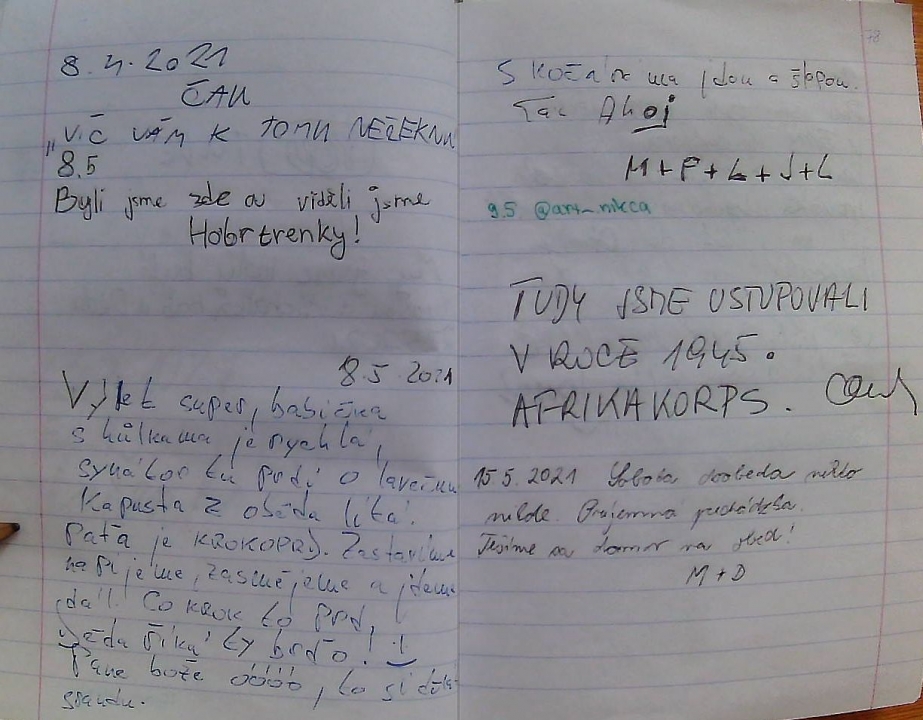 8.4.2021
ČAU
„VÍC VÁM K TOMU NEŘEKNU
8.5
Byli jsme zde a viděli jsme
Hobrtrenky!
8.5 2021
Výlet super, babička
s hůlkama je rychlá,
synátor tu prdí o lavečku
Kapusta z oběda lítá.
Paťa je KROKOPRD. Zastavíme
napijeme, zasmějeme a jdeme
dál! Co krok to prd,
děda říká ty brďo! :)
Pane bože óóóó, to si dělá
srandu.
78
S kočárkama jdou a šlapou.
Tak Ahoj
M+P+L+J+L
9.5 @art_nikca
TUDY JSME USTUPOVALI
V ROCE 1945.
AFRIKAKORPS.
15.5.2021 Sobota dooběda nikto
nikde. Príjemná prechádzka.
Tešíme sa domov na obed!
M+D